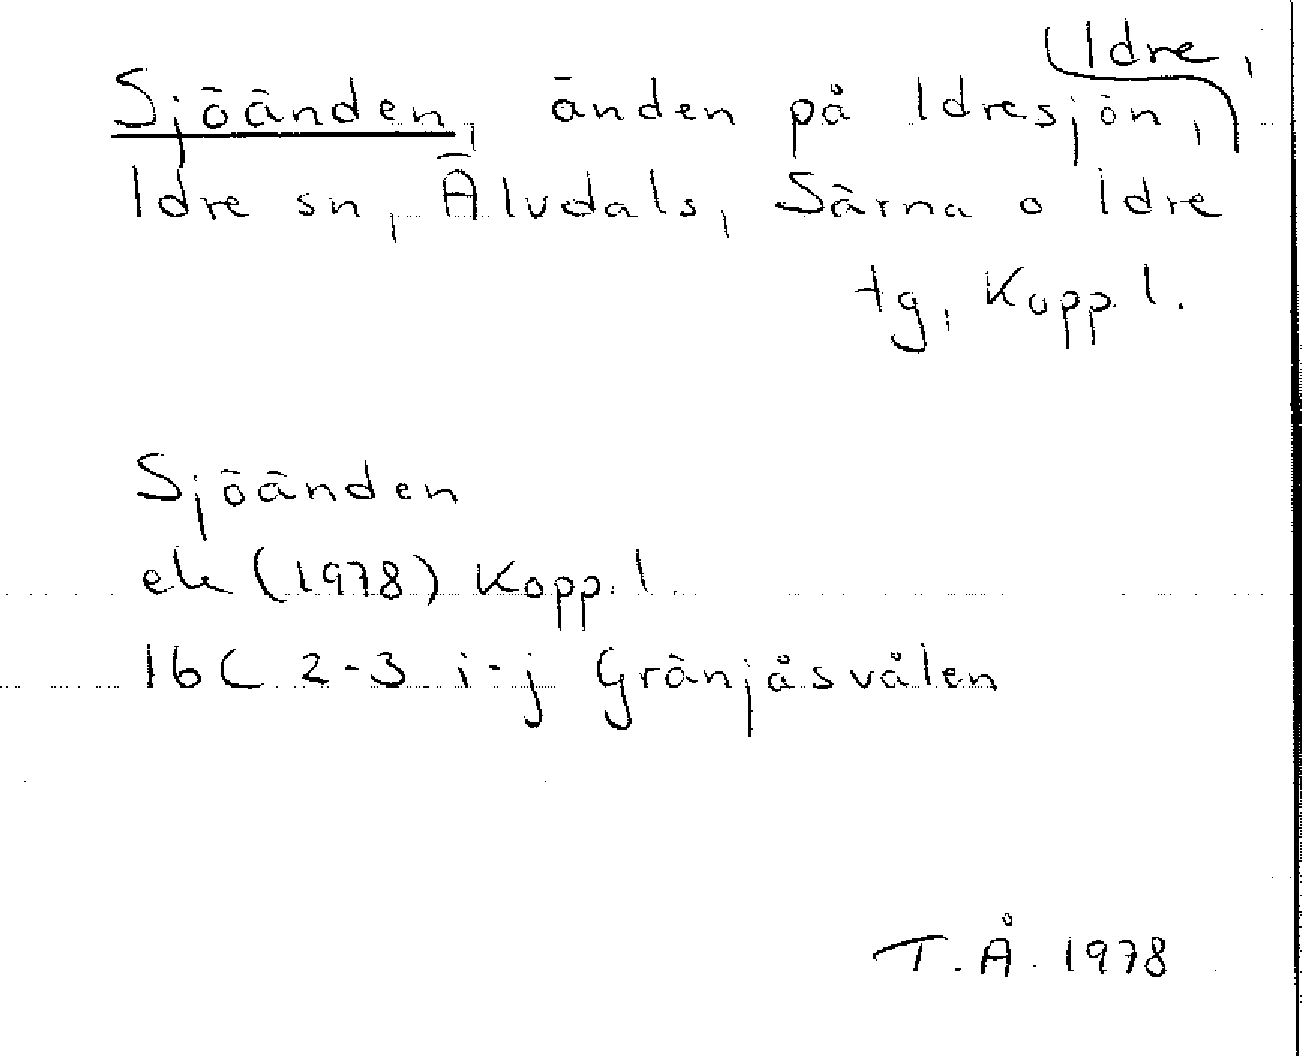 Idre,
Sjöänden, änden på Idresjön,
Idre sn, Älvdals, Särna o Idre
tg, Kopp. l.
Sjöänden
ek (1978) Kopp. l.
16C 2-3 i-j Gränjåsvålen
T.Å. 1978